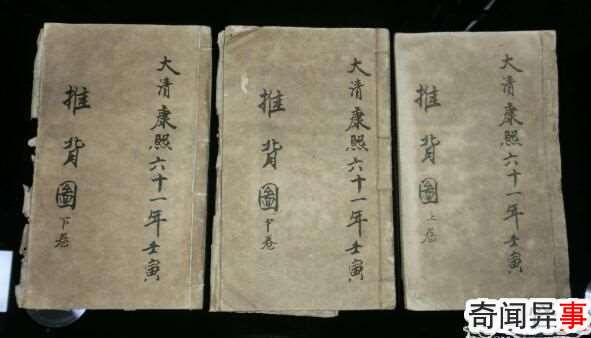 大清康熙六十一年壬寅
推背圖上卷
大清康熙六十一年壬寅
推背圖中卷
大清康熙六十一年壬寅
推背圖下卷
奇闻异事